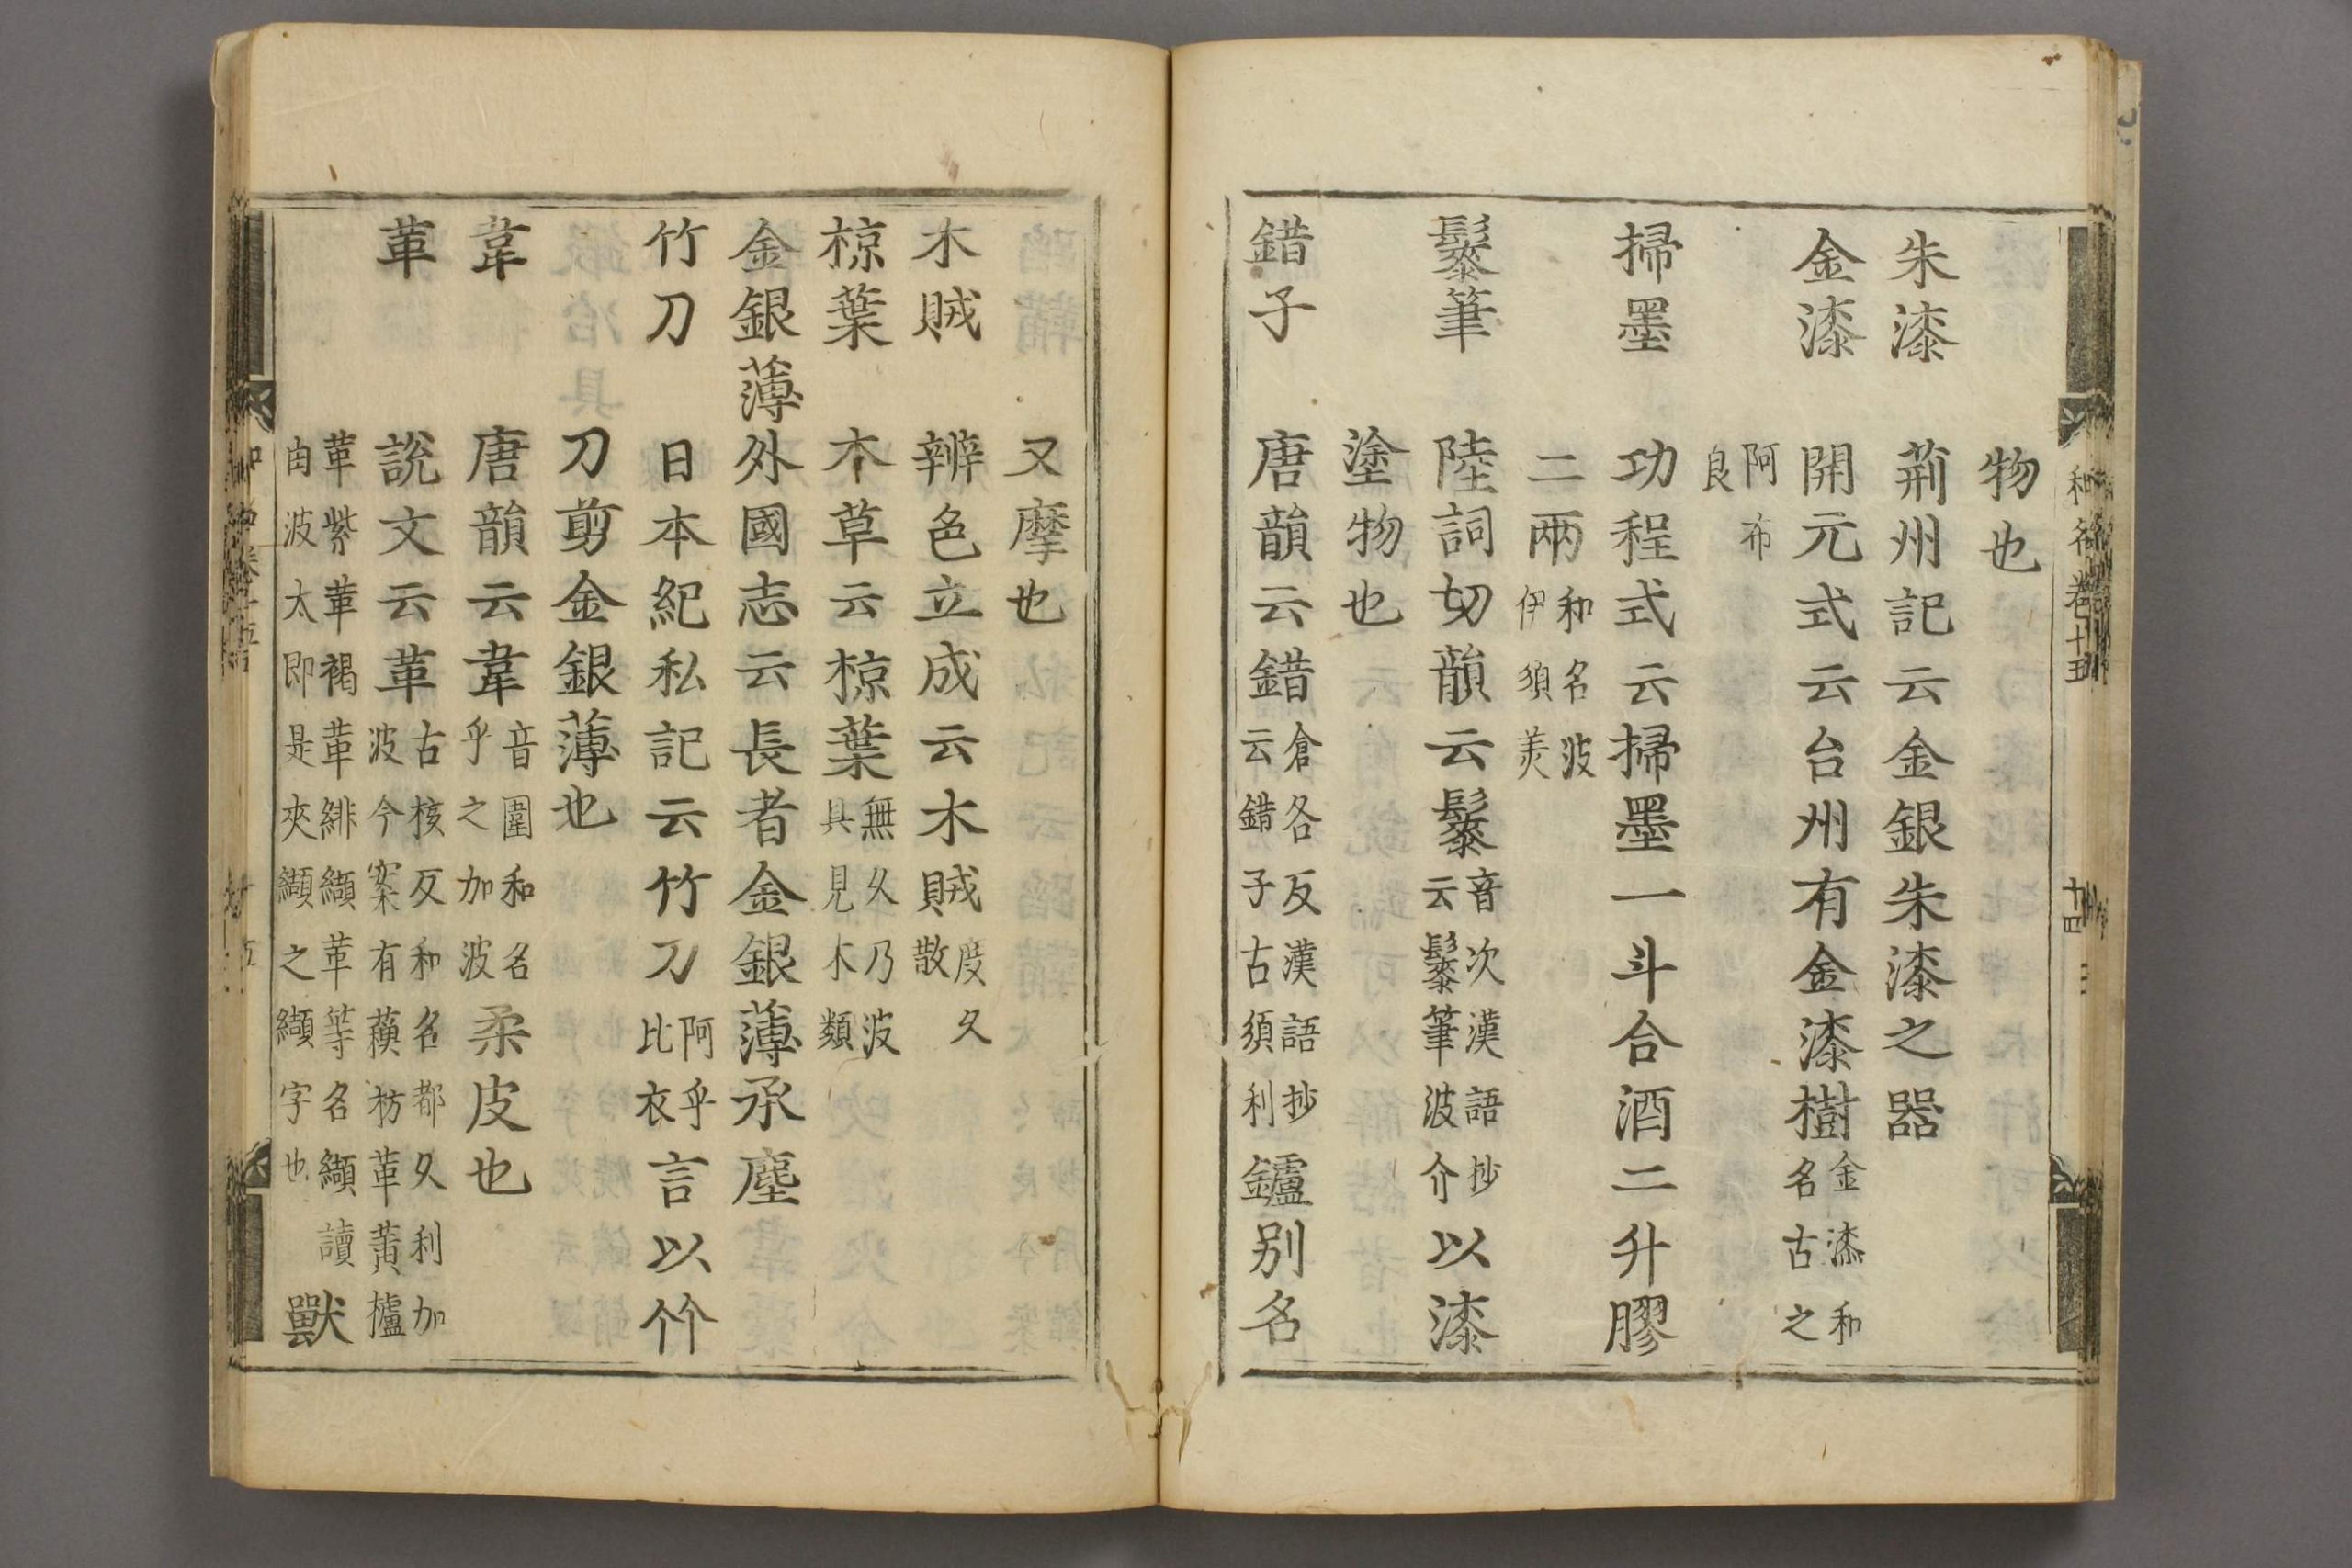 物也
朱漆 荊州記云金銀朱漆之器
金漆 開元式云台州有金漆樹金漆和名古之
阿布良
掃墨 功程式云掃墨一斗合酒二升膠
二兩和名波伊須美
髹筆 陸詞切韻云髹音次漢語抄云髹筆波介以漆
塗物也
錯子 唐韻云錯倉各反漢語抄云錯子古須利鑢別名
又摩也
木賊 辨色立成云木賊度久散
椋葉 本草云椋葉無久乃波具見木類
金銀薄 外國志云長者金銀薄承塵
竹刀 日本紀私記云竹刀阿乎比衣言以竹
刀剪金銀薄也
韋 唐韻云韋音圍和名乎之加波柔皮也
革 說文云革古核反和名都久利加波今案有蘈枋革黃櫨
革紫革褐革緋纈革等名纈讀由波太即是夾纈之纈字也獸
和名卷十五
十四